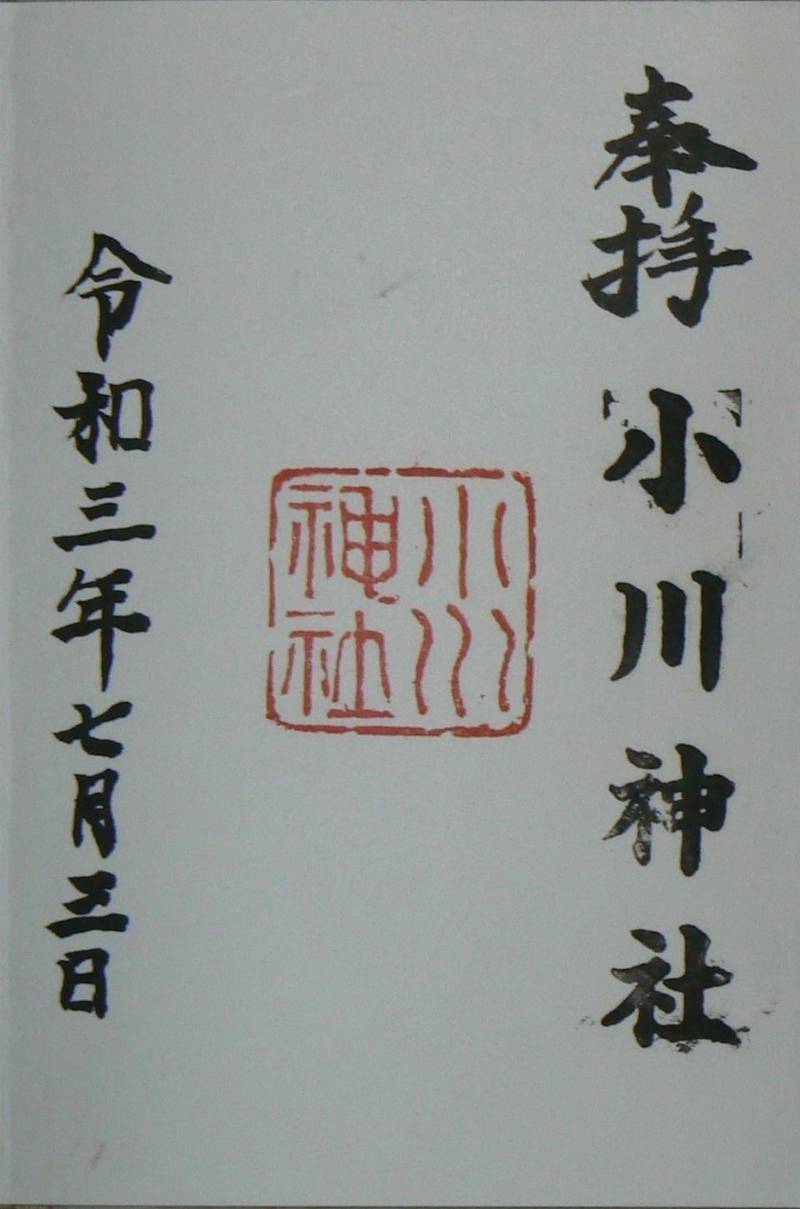 奉拝 小川神社
小川
神社
令和三年七月三日